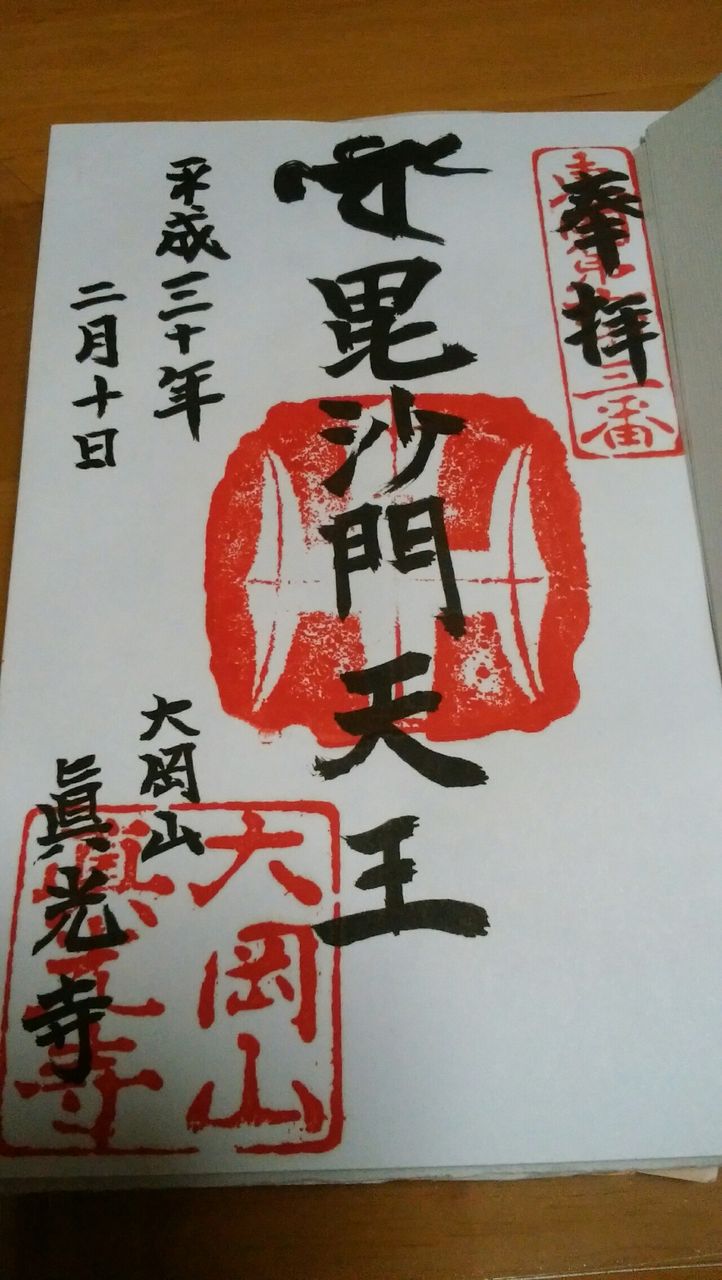 奉拝
三番
毘沙門天王
平成三十年
二月十日
大岡山
眞光寺
大岡山
眞光寺